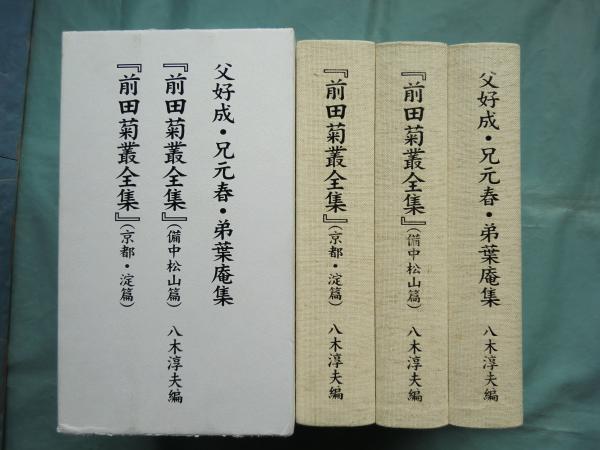 父好成・兄元春・弟葉庵集
『前田菊叢全集』（備中松山篇） 八木淳夫編
『前田菊叢全集』（京都・淀篇）
父好成・兄元春・弟葉庵集 八木淳夫編
『前田菊叢全集』（備中松山篇） 八木淳夫編
『前田菊叢全集』（京都・淀篇） 八木淳夫編